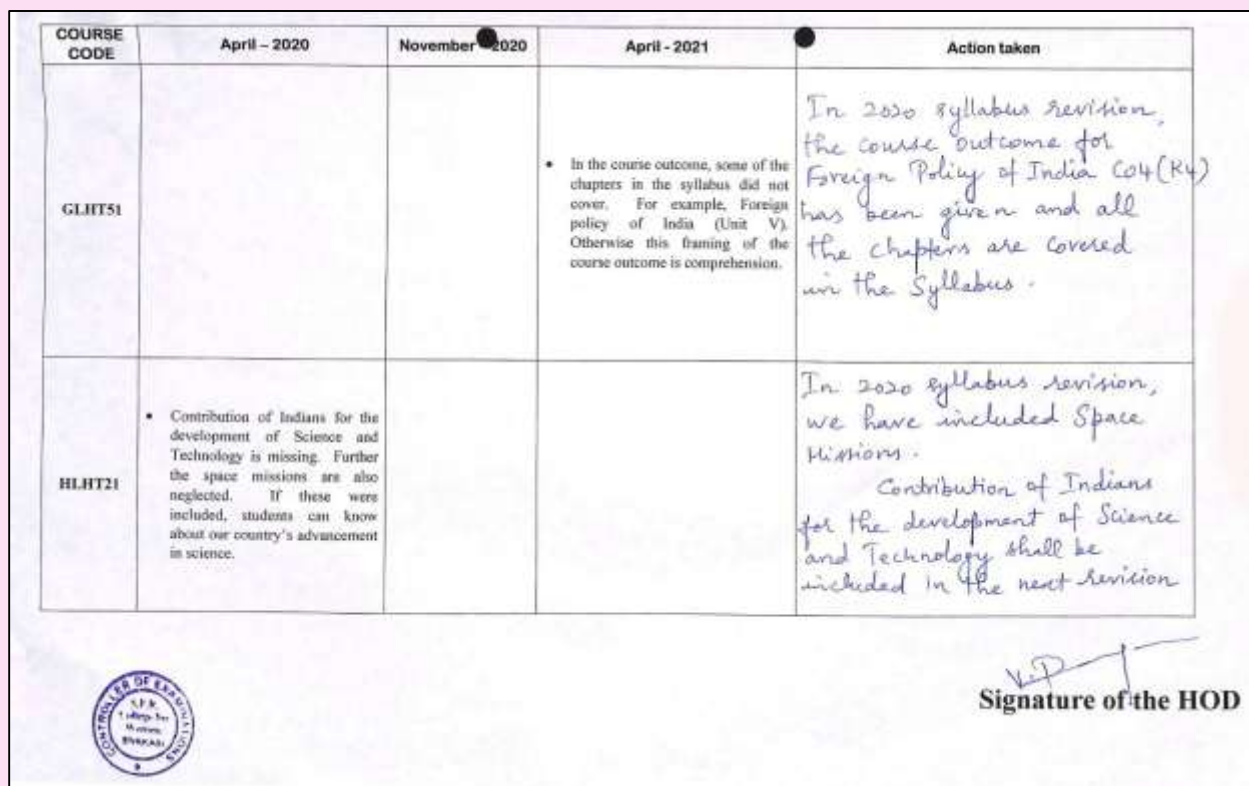 COURSE
CODE
April – 2020
November - 2020
April - 2021
Action taken
GLHT51
• In the course outcome, some of the
chapters in the syllabus did not
cover. For example, Foreign
policy of India (Unit V).
Otherwise this framing of the
course outcome is comprehension.
In 2020 syllabus revision,
the course outcome for
Foreign Policy of India CO4(K4)
has been given and all
the chapters are covered
in the Syllabus.
HLHT21
• Contribution of Indians for the
development of Science and
Technology is missing. Further
the space missions are also
neglected. If these were
included, students can know
about our country's advancement
in science.
In 2020 syllabus revision,
we have included Space
Missions.
Contribution of Indians
for the development of Science
and Technology shall be
included in the next revision
CONTROLLER OF EXAMINATIONS
SIVAKASI
Signature of the HOD